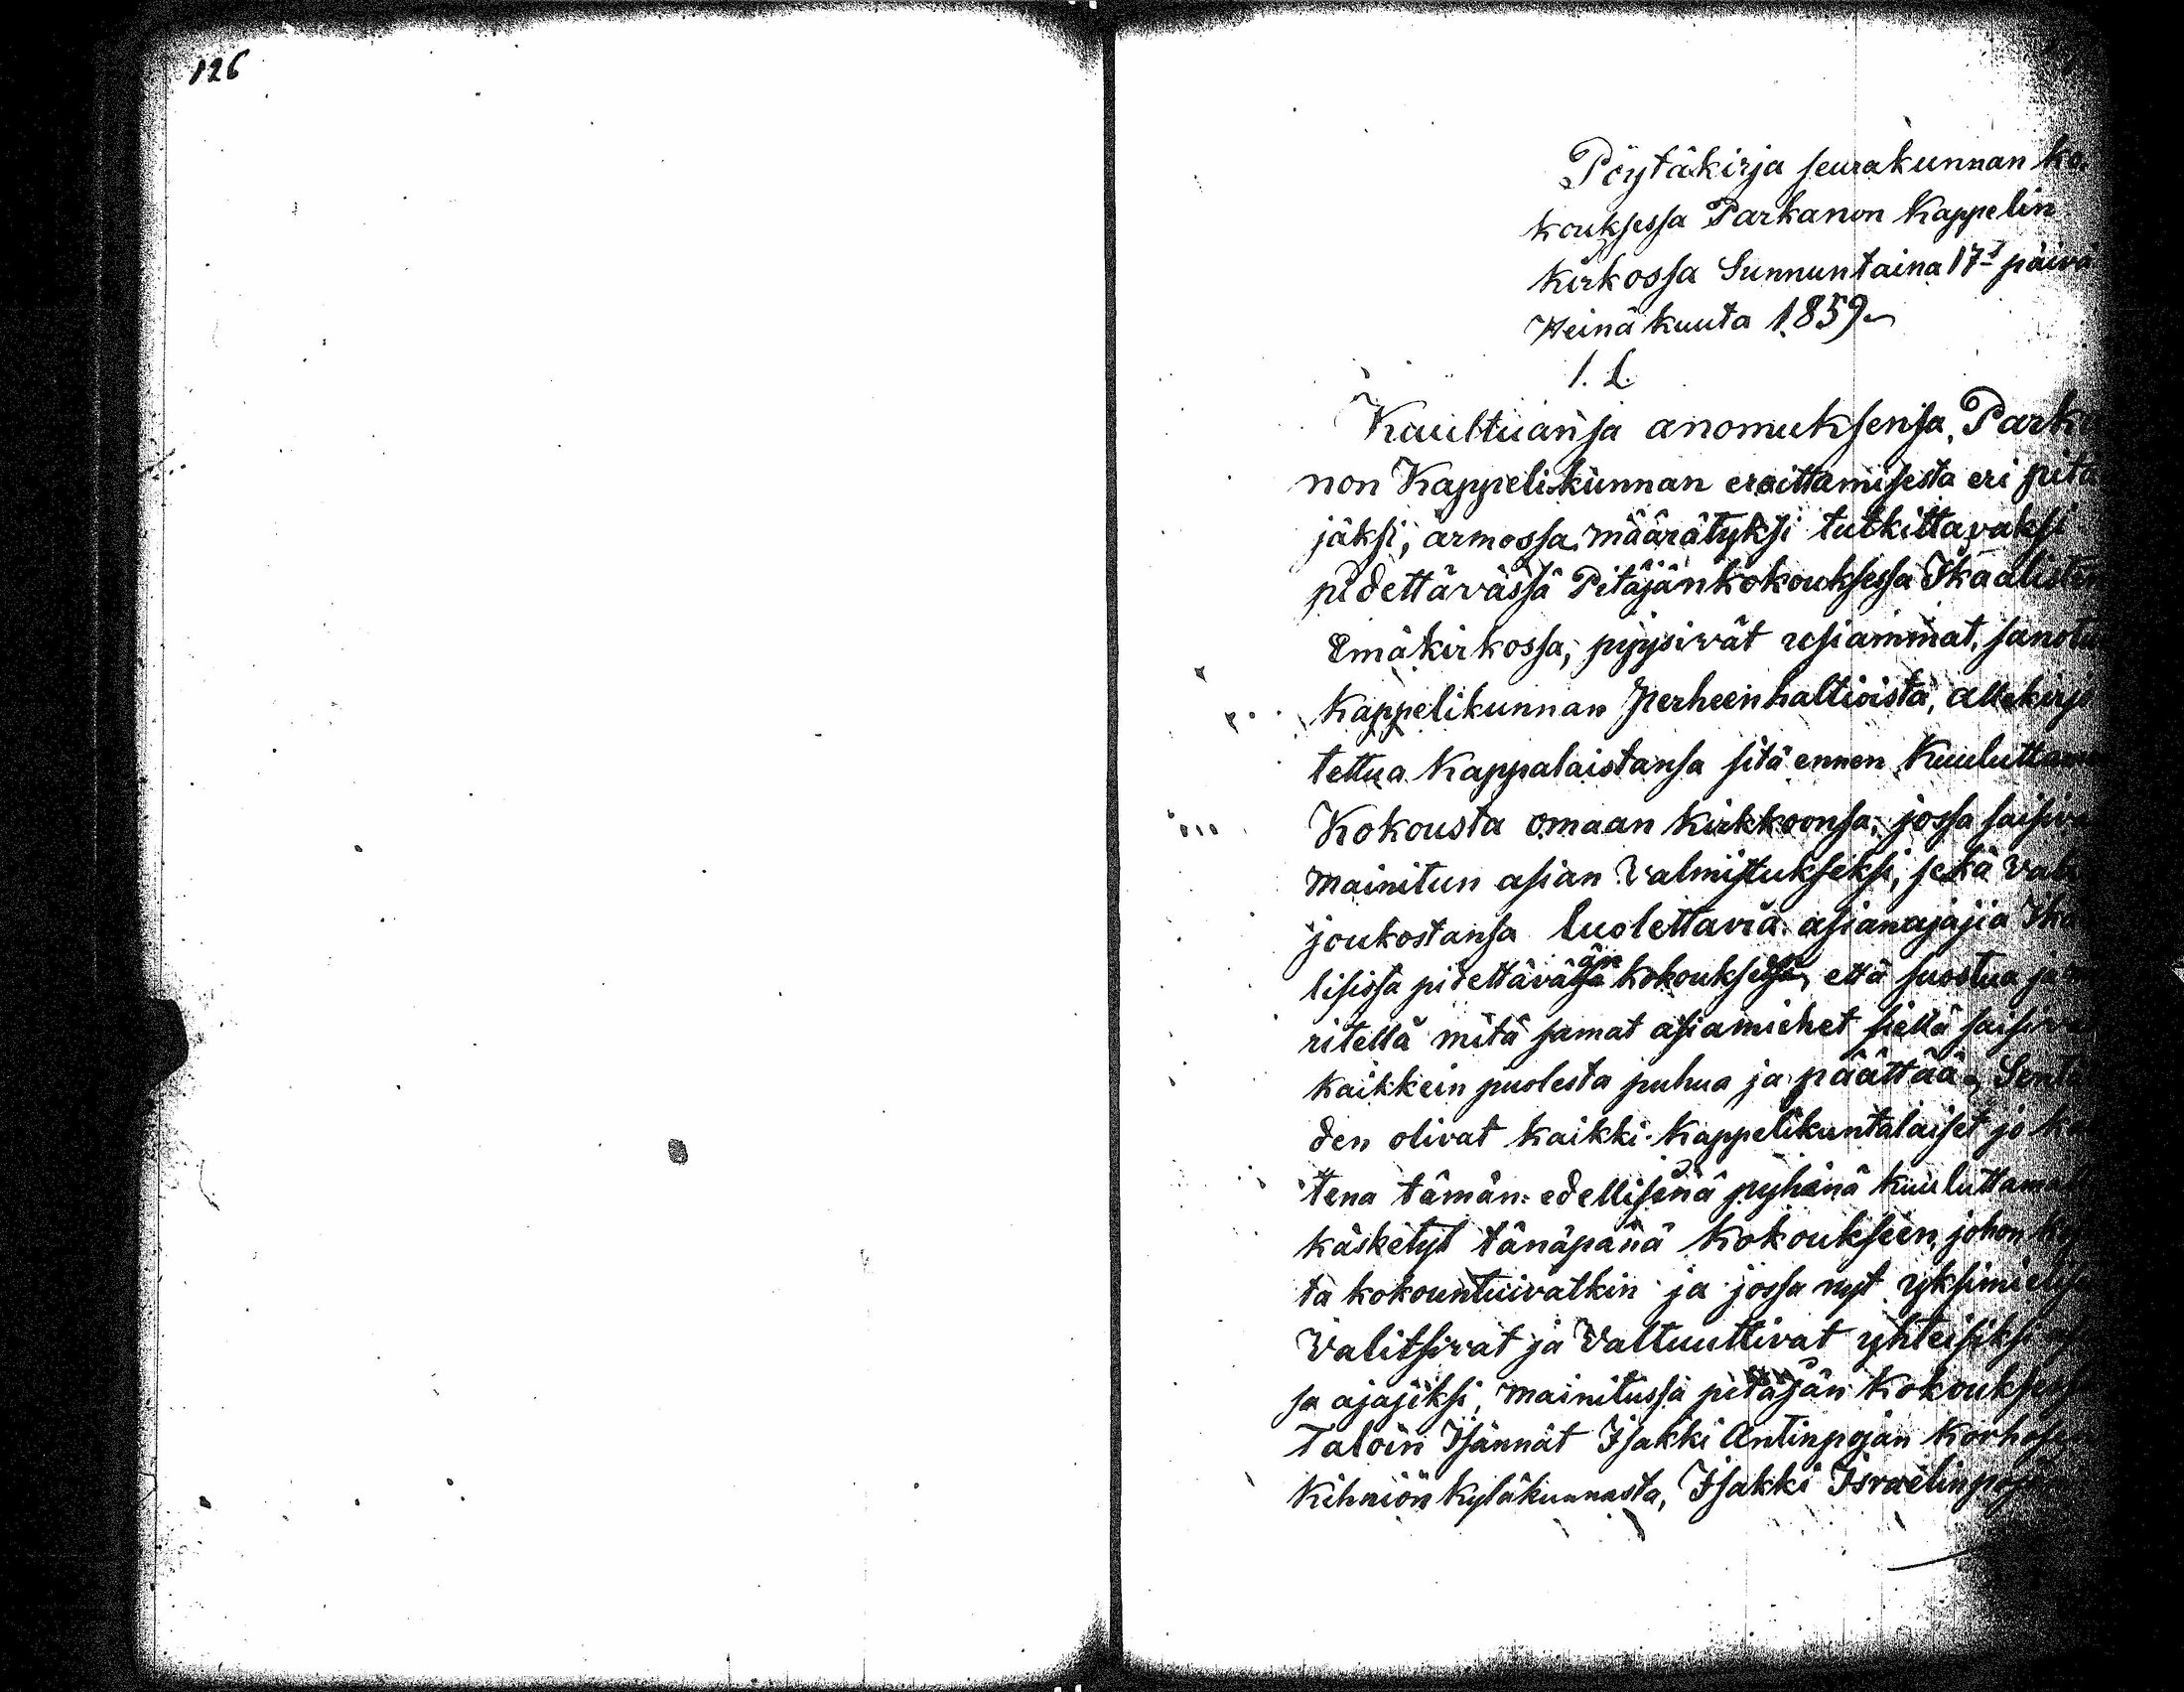 126
Pöytäkirja seurakunnan ko-
kouksessa Parkanon Kappelin
Kirkossa Sunnuntaina 17s päivä
Heinäkuuta 1859
1. §.
Kuultuansa anomuksensa, Parka
non Kappelikunnan eroittamisesta eri pitä
jäksi, armossa määrätyksi tutkittavaksi
pidettävässä Pitäjänkokouksessa Ikaalisten
Emäkirkossa, pyysivät usiammat, sanotun
Kappelikunnan Perheenhaltioista, allekirjo
tettua Kappalaistansa sitä ennen Kuuluttamaan
Kokousta omaan Kirkkoonsa, jossa saisivat
mainitun asian valmistukseksi, sekä vali
joukostansa luolettavia asianajajia Ika
lisissa pidettävään kokoukseen, että suostua ja
ritellä mitä samat asiamiehet siellä saisivat
kaikkein puolesta puhua ja päättää. Sentä
den olivat kaikki Kappelikuntalaiset jo
tena tämän edellisenä pyhänä kuuluttamalla
käsketyt tänäpänä Kokoukseen, johon
ta kokountuivatkin ja jossa nyt yksimielisesti
Valitsivat ja Valtuuttivat yhteisiksi
sa ajajiksi, mainitussa pitäjän Kokouksessa
Taloin Isännät Isakki Antinpojan Korhosen
Kihniön Kyläkunnasta, Isakki Israelinpojan